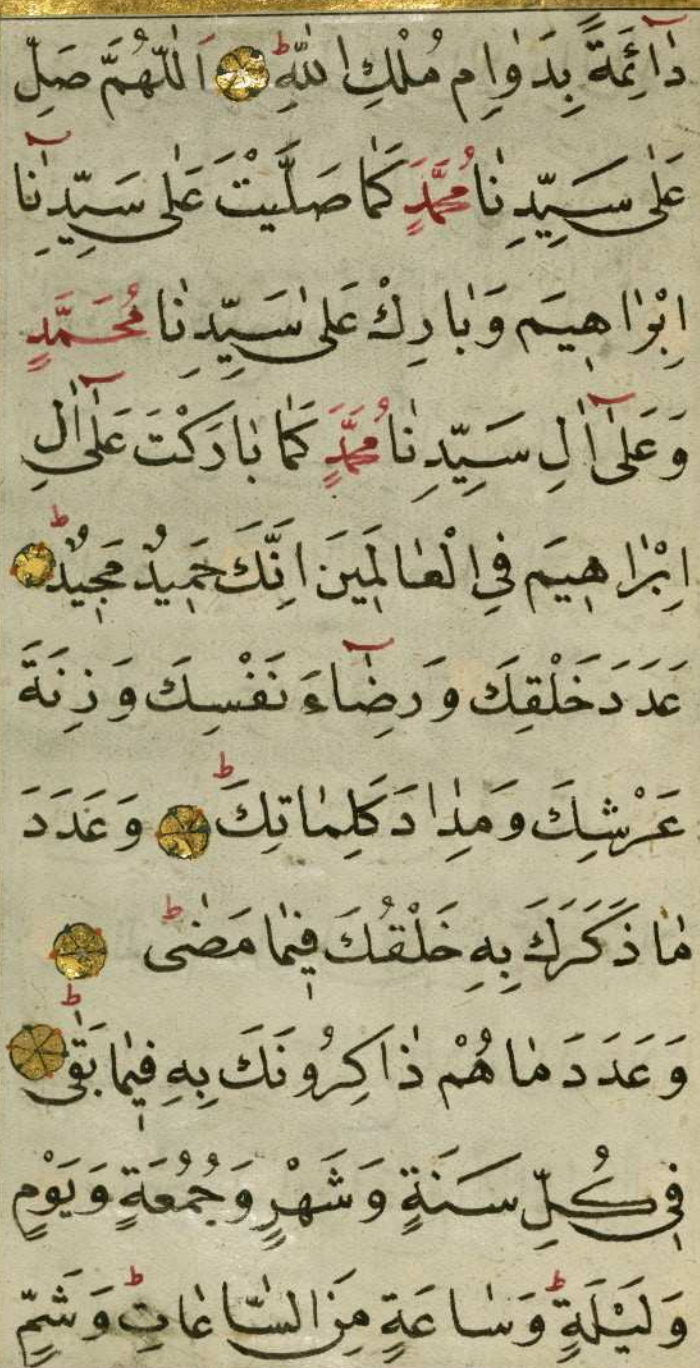 دَآئِمَةً بِدَوَامِ مُلْكِ اللهِ ط اَللّٰهُمَّ صَلِّ
عَلٰى سَيِّدِنَا مُحَمَّدٍ كَمَا صَلَّيْتَ عَلٰى سَيِّدِنَآ
اِبْرَاهِيمَ وَبَارِكْ عَلٰى سَيِّدِنَا مُحَمَّدٍ
وَعَلٰٓى اٰلِ سَيِّدِنَا مُحَمَّدٍ كَمَا بَارَكْتَ عَلٰٓى اٰلِ
اِبْرَاهِيمَ فِي الْعَالَمِينَ اِنَّكَ حَمِيدٌ مَجِيدٌ ط
عَدَدَ خَلْقِكَ وَرِضَآءَ نَفْسِكَ وَزِنَةَ
عَرْشِكَ وَمِدَادَ كَلِمَاتِكَ ط وَعَدَدَ
مَا ذَكَرَكَ بِهِ خَلْقُكَ فِيمَا مَضٰى ط
وَعَدَدَ مَا هُمْ ذَاكِرُونَكَ بِهِ فِيمَا بَقٰى ط
فِي كُلِّ سَنَةٍ وَشَهْرٍ وَجُمُعَةٍ وَيَوْمٍ
وَلَيْلَةٍ ط وَسَاعَةٍ مِنَ السَّاعَاتِ ط وَشَمٍّ